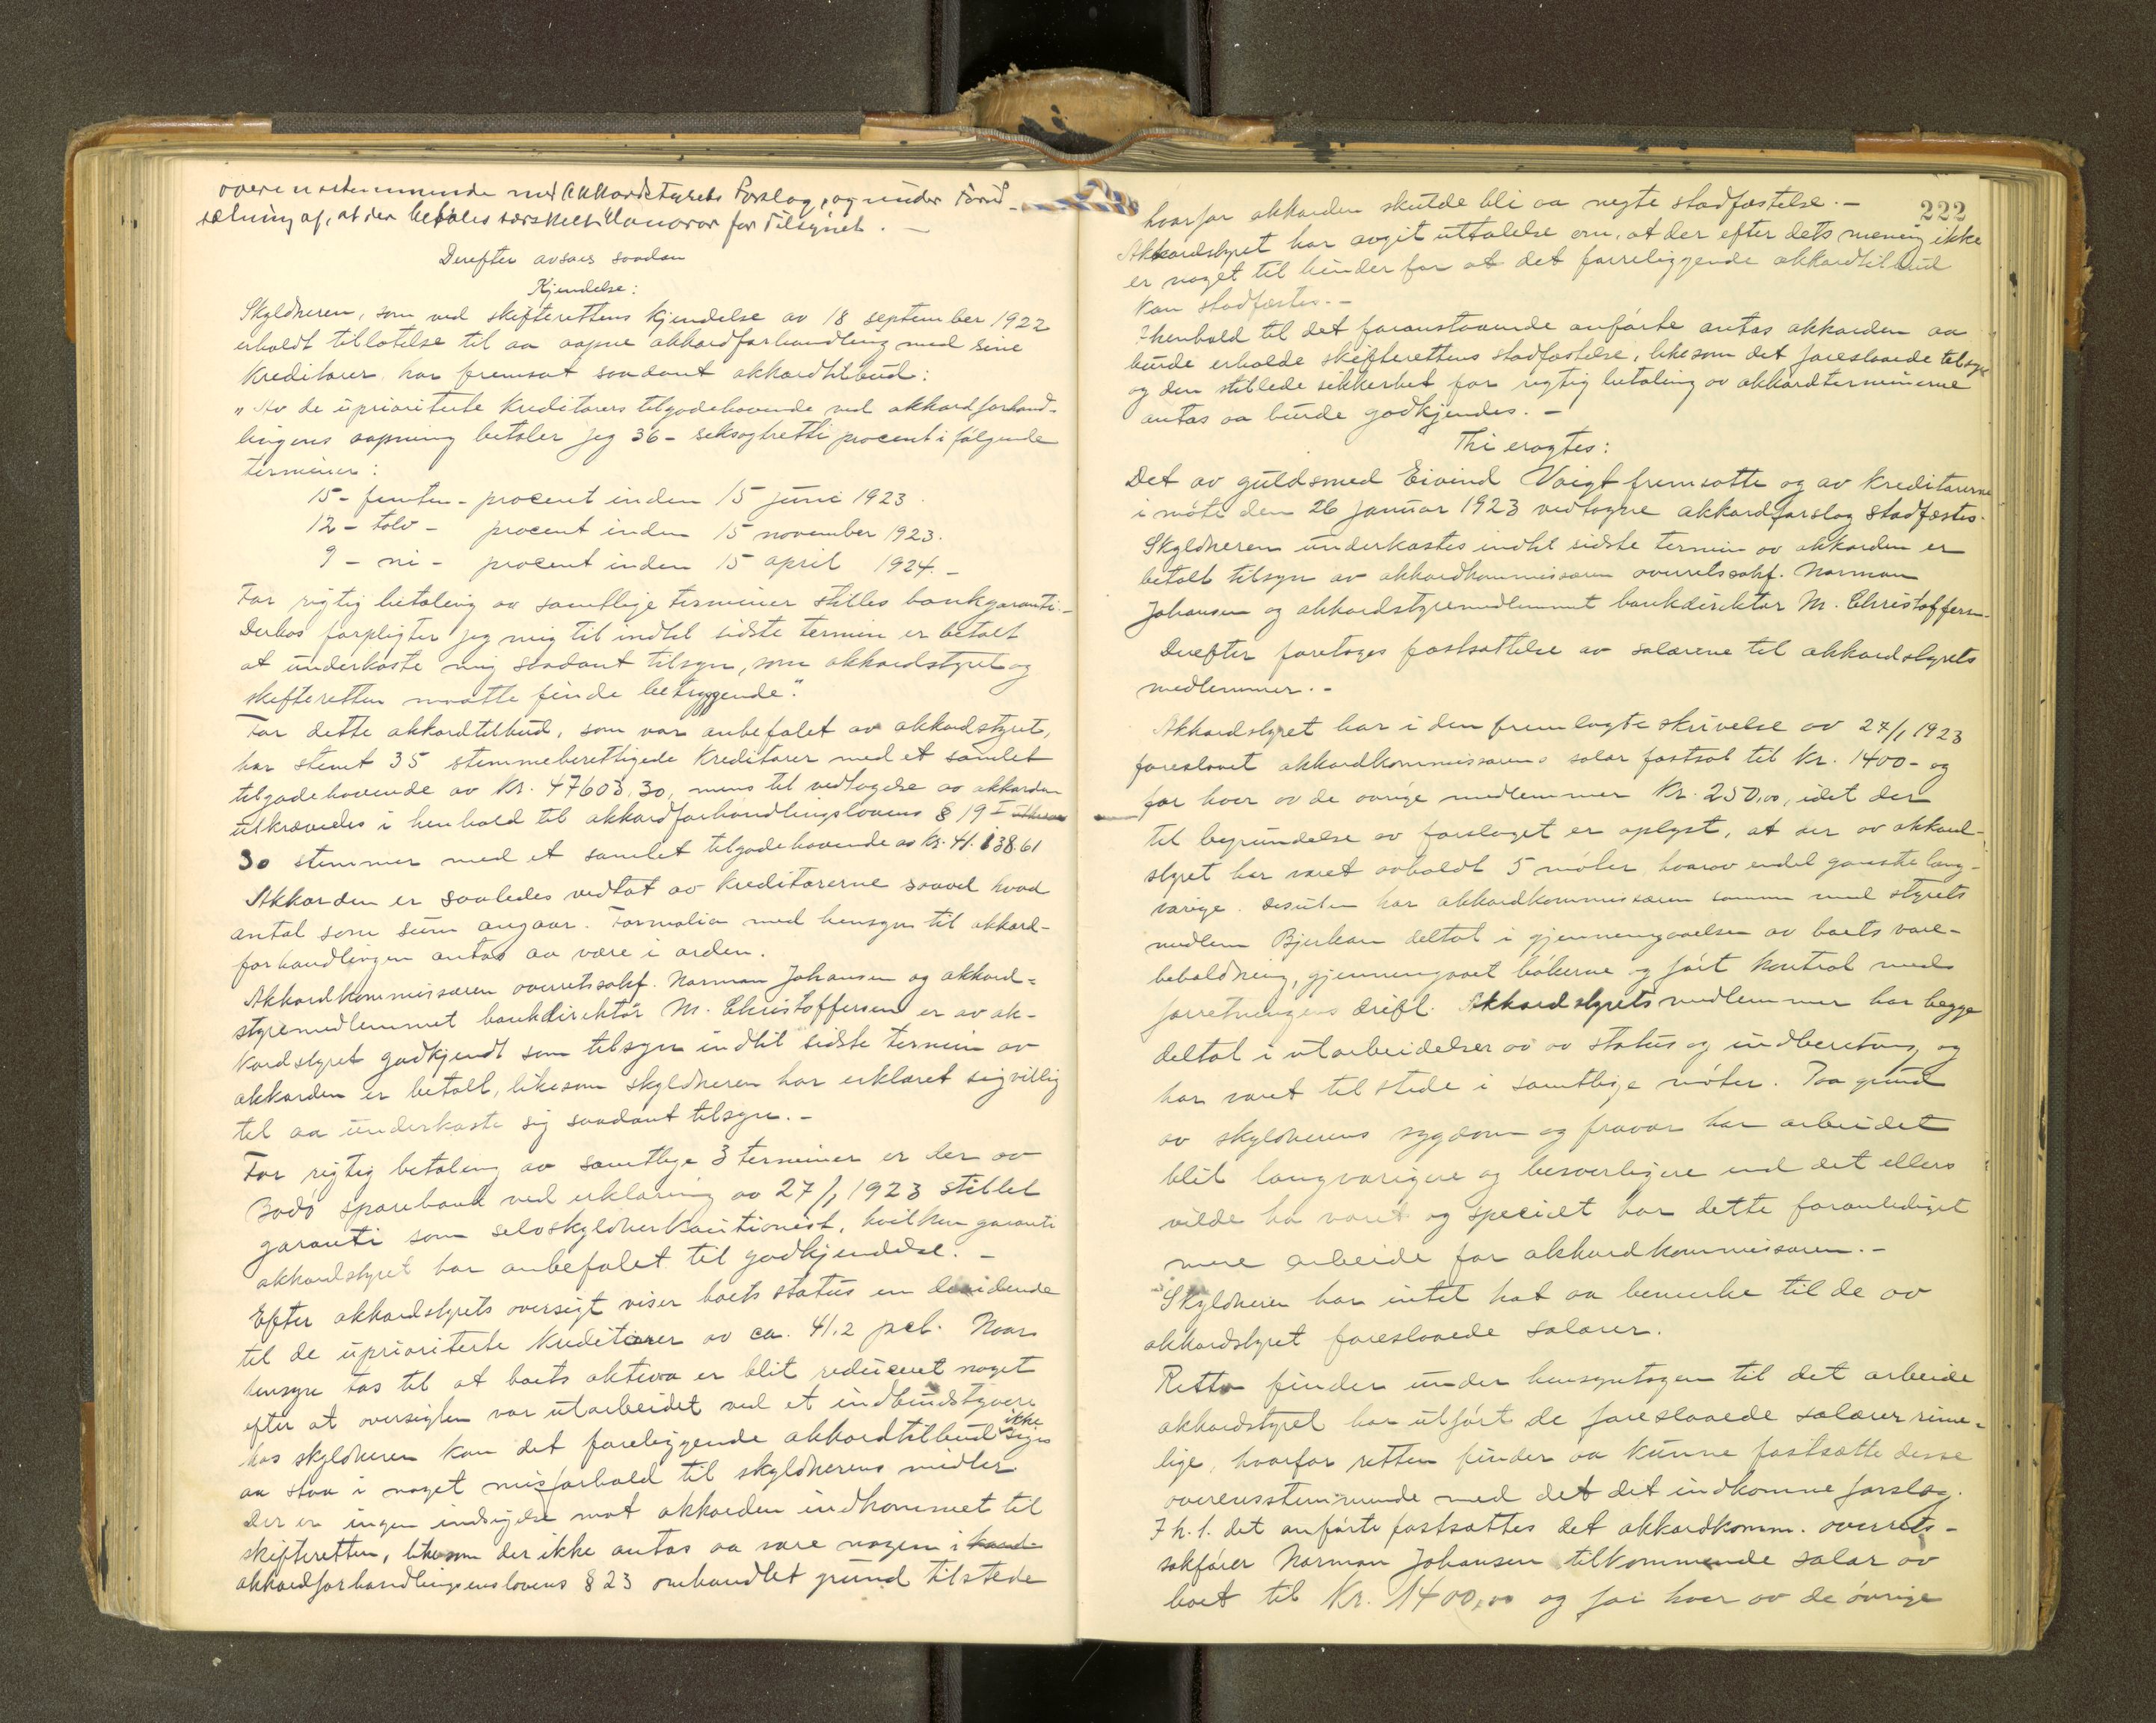 overensstemmende med Akkordstyrets Forslag, og under Forud-
sætning af, at der betales særskilt Honorar for Tilsynet. —
Derefter avsaes saadan
Kjendelse:
Skyldneren, som ved skifterettens kjendelse av 18 september 1922
erholdt tillatelse til aa aapne akkordforhandling med sine
kreditorer har fremsat saadant akkordtilbud:
"Av de uprioriterte kreditorers tilgodehavende ved akkordforhand-
lingens aapning betaler jeg 36 - seksogtretti procent i følgende
terminer:
15 - femten - procent inden 15 juni 1923.
12 - tolv - procent inden 15 november 1923.
9 - ni - procent inden 15 april 1924. -
For rigtig betaling av samtlige terminer stilles bankgaranti. -
Derhos forpligter jeg mig til indtil sidste termin er betalt
at underkaste mig saadant tilsyn, som akkordstyret og
skifteretten maatte finde betryggende".
For dette akkordtilbud, som var anbefalet av akkordstyret,
har stemt 35 stemmeberettigede kreditorer med et samlet
tilgodehavende av kr. 47603,30, mens til vedtagelse av akkorden
utkrævedes i henhold til akkordforhandlingslovens § 19 I
30 stemmer med et samlet tilgodehavende av kr. 41.138.61
Akkorden er saaledes vedtat av kreditorerne saavel hvad
antal som sum angaar. Formalia med hensyn til akkord-
forhandlingen antas aa være i orden.
Akkordkommissæren overretssakf. Norman Johansen og akkord-
styremedlemmet bankdirektör M. Christoffersen er av ak-
kordstyret godkjendt som tilsyn indtil sidste termin av
akkorden er betalt, likesom skyldneren har erklæret sig villig
til aa underkaste sig saadant tilsyn. -
For rigtig betaling av samtlige 3 terminer er der av
Bodö sparebank ved erklæring av 27/1 1923 stillet
garanti som selvskyldnerkautionist, hvilken garanti
akkordstyret har anbefalet til godkjendelse. -
Efter akkordstyrets oversigt viser boets status en devidende
til de uprioriterte kreditorer av ca. 41,2 pct. Naar
hensyn tas til at boets aktiva er blit reduceret noget
efter at oversigten var utarbeidet ved et indbrudstyveri
hos skyldneren kan det foreliggende akkordtilbud ikke siges
aa staa i noget misforhold til skyldnerens midler
Der er ingen indsigelse mot akkorden indkommet til
skifteretten, likesom der ikke antas aa være nogen i
akkordforhandlingenslovens § 23 omhandlet grund tilstede
222
hvorfor akkorden skulde bli aa negte stadfæstelse. -
Akkordstyret har avgit uttalelse om, at der efter dets mening ikke
er noget til hinder for at det foreliggende akkordtilbud
kan stadfæstes. -
I henhold til det foranstaaende anförte antas akkorden aa
burde erholde skifterettens stadfæstelse, likesom det foreslaaede tilsyn
og den stillede sikkerhet for rigtig betaling av akkordterminerne
antas aa burde godkjendes. -
Thi eragtes:
Det av guldsmed Eivind Voigt fremsatte og av kreditorerne
i möte den 26 januar 1923 vedtagne akkordforslag stadfæstes.
Skyldneren underkastes indtil sidste termin av akkorden er
betalt tilsyn av akkordkommissæren overretssakf. Norman
Johansen og akkordstyremedlemmet bankdirektör M. Christoffersen.
Derefter foretages fastsættelse av salærene til akkordstyrets
medlemmer. -
Akkordstyret har i den fremlagte skrivelse av 27/1 1923
foreslaaet akkordkommissærens salær fastsat til kr. 1400 - og
for hver av de øvrige medlemmer kr. 250,00, idet der
til begrundelse av forslaget er oplyst, at der av akkord-
styret har været avholdt 5 möter, hvorav endel ganske lang-
varige. Desuten har akkordkommissæren sammen med styrets
medlem Bjerkan deltat i gjennemgaaelsen av boets vare-
beholdning, gjennemgaaet bökerne og fört kontrol med
forretningens drift. Akkordstyrets medlemmer har begge
deltat i utarbeidelsen av av status og indberetning og
har været tilstede i samtlige möter. Paa grund
av skyldnerens sygdom og fravær har arbeidet
blit langvarigere og besværligere end det ellers
vilde ha været og specielt har dette foranlediget
mere arbeide for akkordkommissæren. -
Skyldneren har intet hat aa bemerke til de av
akkordstyret foreslaaede salærer.
Retten finder under hensyntagen til det arbeide
akkordstyret har utfört de foreslaaede salærer rime-
lige, hvorfor retten finder aa kunne fastsætte disse
overensstemmende med det det indkomne forslag.
I h. t. det anförte fastsættes det akkordkomm. overrets-
sakförer Norman Johansen tilkommende salær av
boet til Kr. 1400,00 og for hver av de övrige